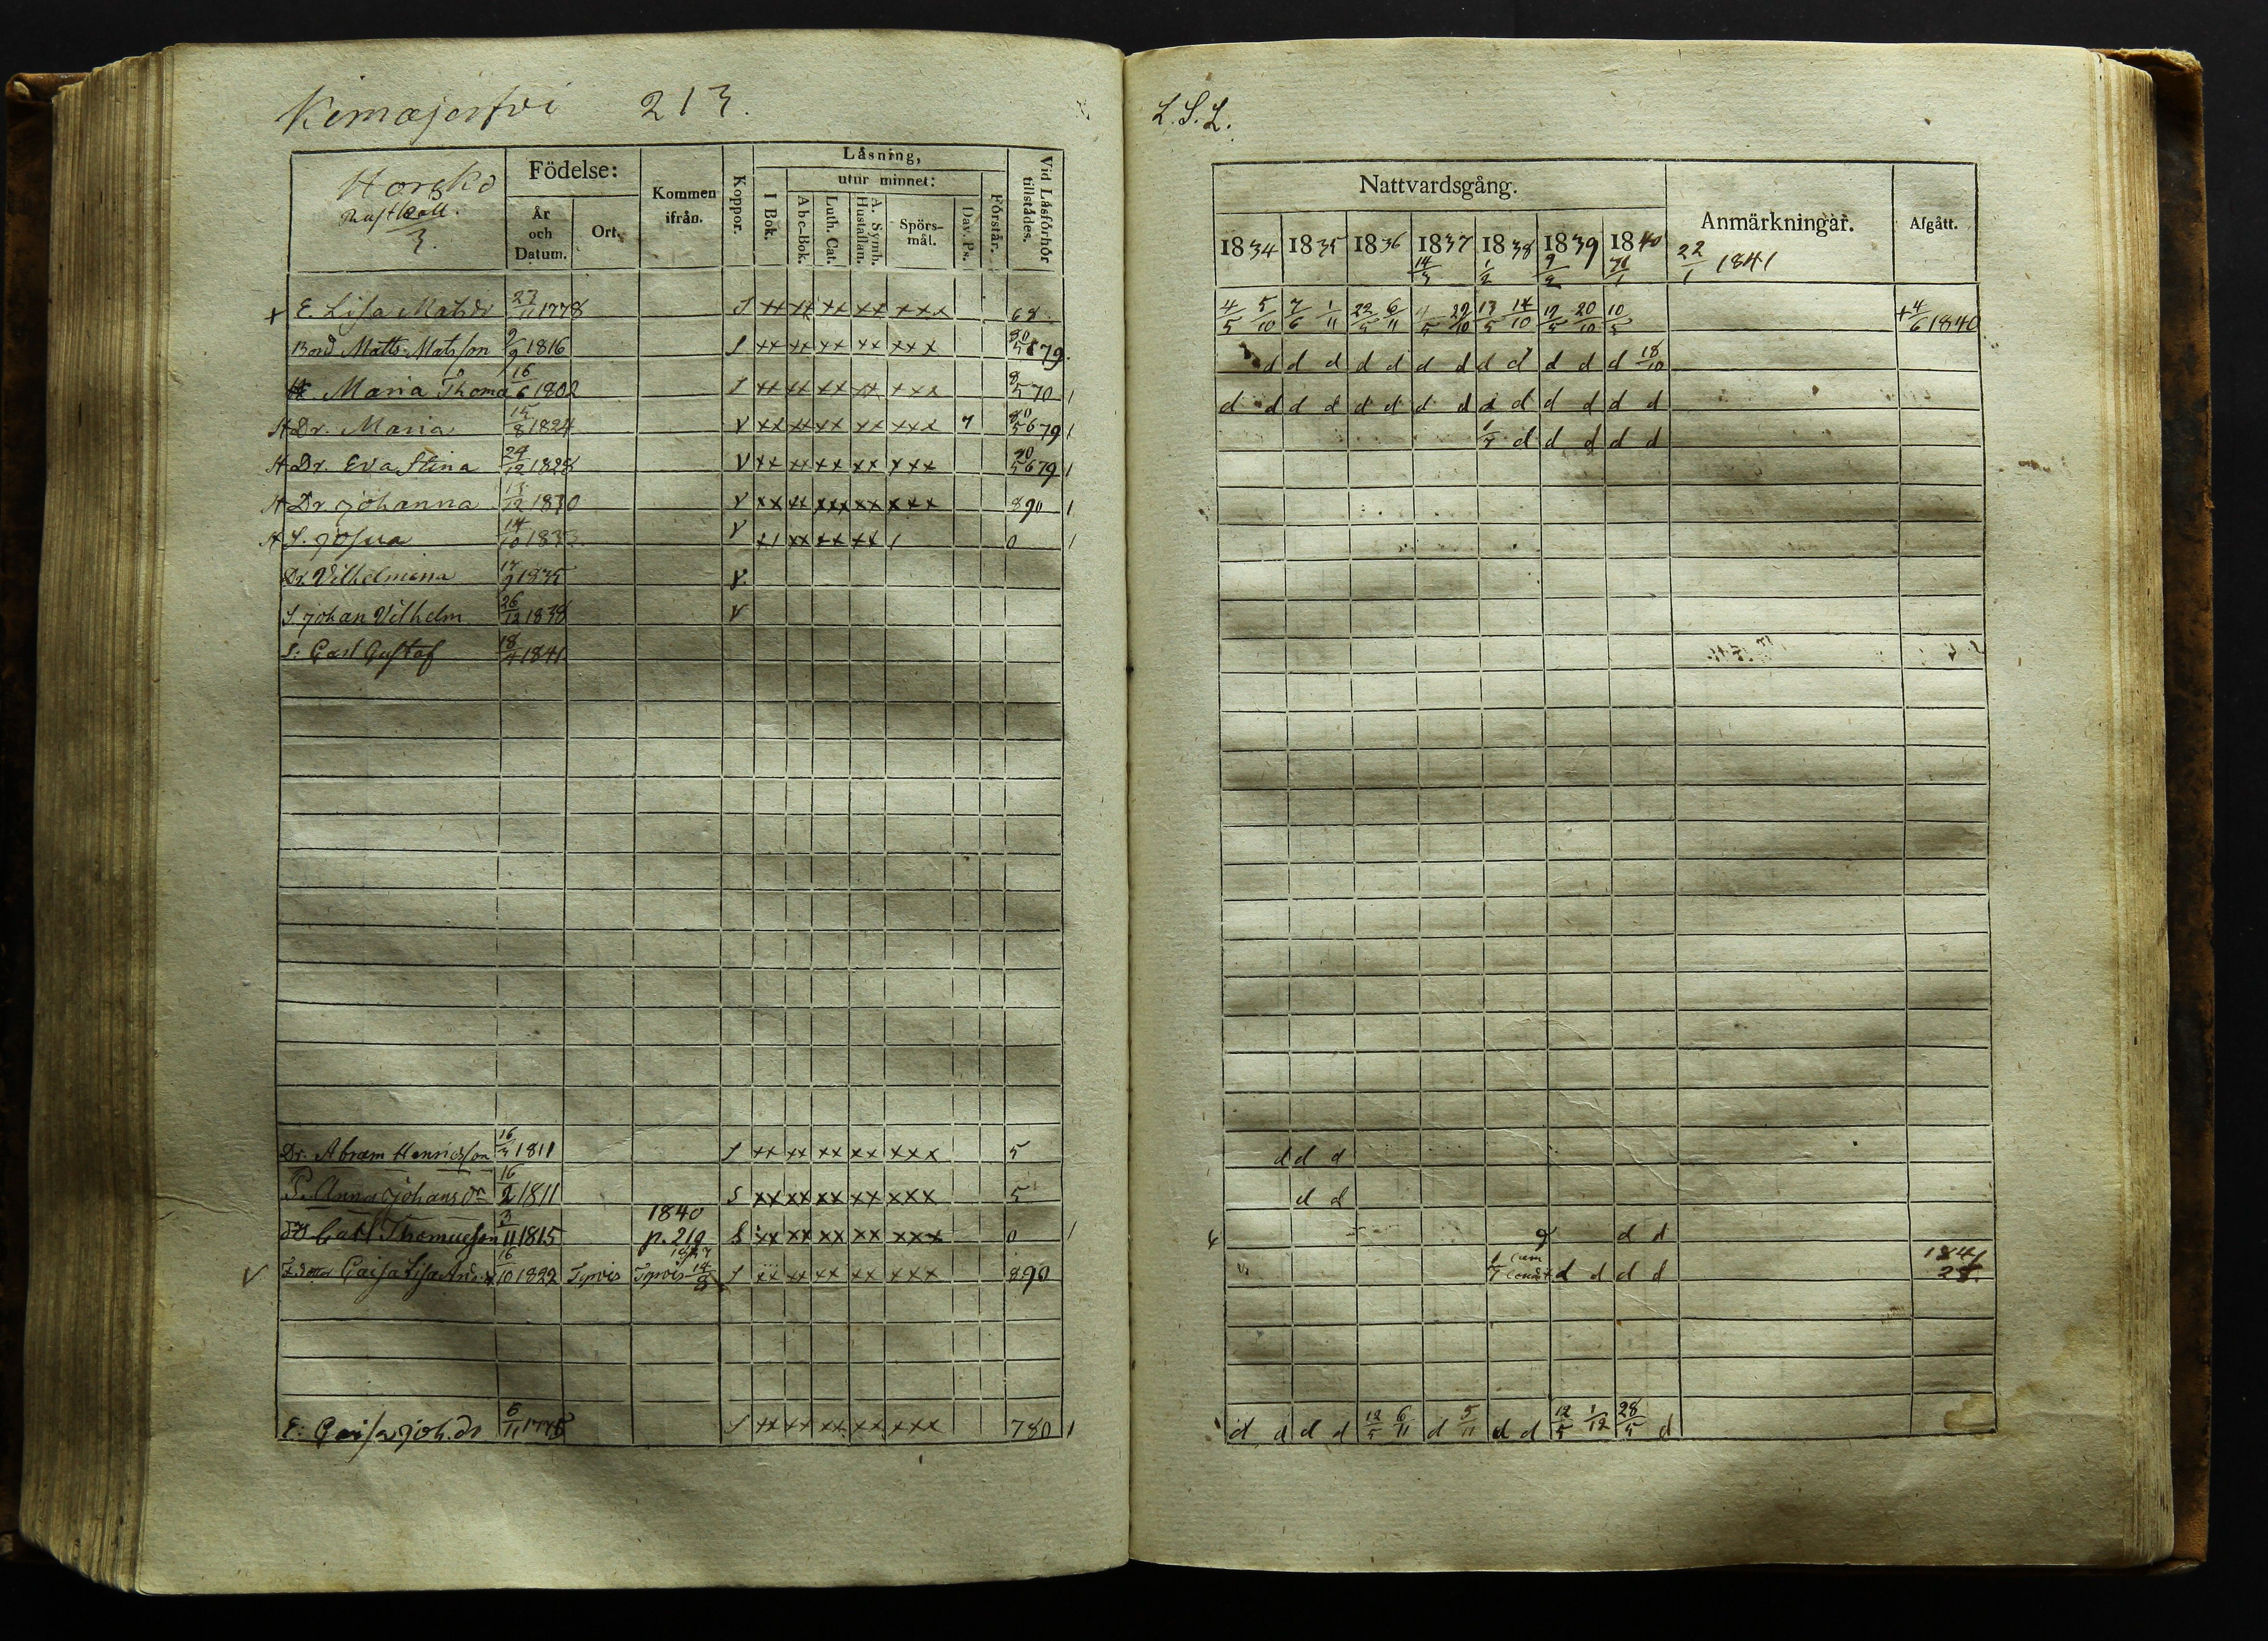 Kemæjerfvi 213.
L. S. L.
Horsko
3.
Födelse:
År
och
Datum.
Ort.
Kommen
ifrån.
Koppor.
Läsning,
utur minnet:
I Bok.
Abc-Bok.
Luth. Cat.
A. Symb.
Hustaflan.
Spörs-
mål.
Dav. Ps.
Förstår.
Vid Läsförhör
tillstädes.
E. Lisa Matsdr 27/11 1778 S xx xx xx xx xxx 68
Bond Matts Matsson 9/9 1816 S xx xx xx xx xxx
H. Maria Thoma 16/6 1802 S xx xx xx xx xxx 8/5 70 1
Dr. Maria 14/8 1824 V xx xx xx xx xxx 679 1
Dr. Eva Stina 29/12 1828 V xx xx xx xx xxx 679 1
Dr johanna 13/12 1830 V xx xx xxx xx xxx 890 1
S. josua 14/10 1833 V x1 xx xx xx 1 0 1
Dr. Vilhelmina 1835 V.
S. johan Vilhelm 26/12 1838 V
S: Carl Gustaf 18/4 1841
Dr. Abram Henricsson 16/3 1811 S xx xx xx xx xxx 5
P. Anna johansdr 16/2 1811 S xx xx xx xx xxx 5
Carl Thomasson 3/11 1815 1840 p. 219 S xx xx xx xx xxx 0 1
Caisa Lisa And. 16/10 1822 S xx xx xx xx xxx 890
E: Caisa joh.dr 6/11 1775 S xx xx xx xx xxx 780 1
Nattvardsgång.
Anmärkningar.
Afgått.
1834 1835 1836 1837 1838 1839 1840 22/1 1841
14/3 1/2 9/2
4/5 5/10 7/6 1/11 22/5 6/11 4/5 29/10 13/5 14/10 12/5 20/10 10/5 + 4/6 1840
d d d d d d d d d d d d 18/10
d d d d d d d d d d d d d d
d d d d d
d d d
d d
d d
cum d d d d 1841
28.
d d d d 12/5 6/11 d 5/11 d d 12/5 1/12 28/5 d